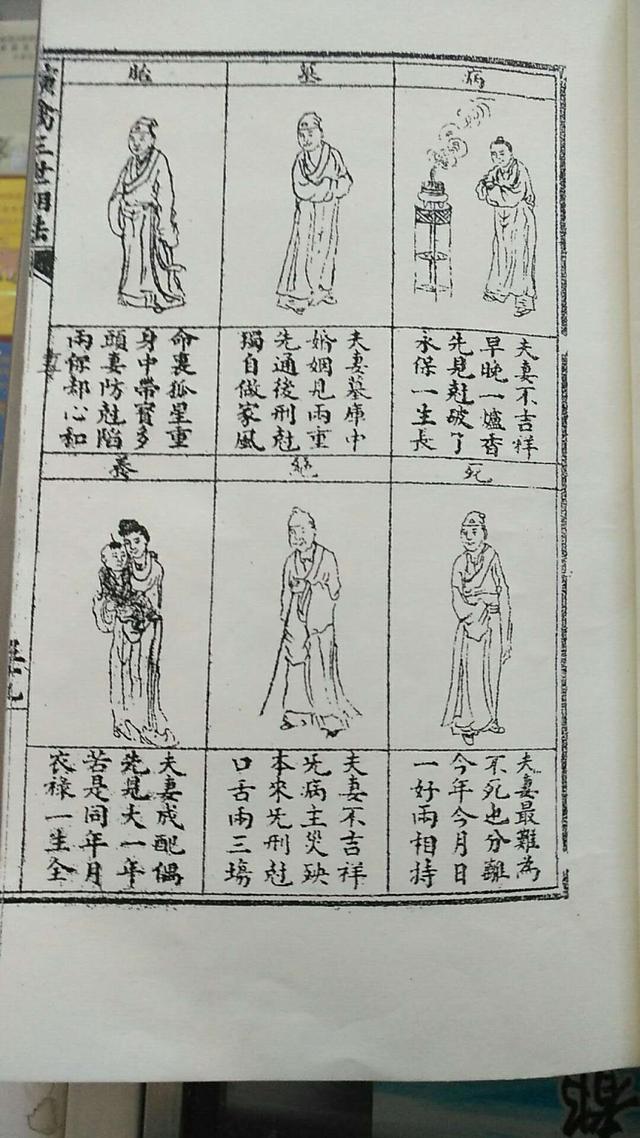 病
夫妻不吉祥
早晚一爐香
先見尅破了
永保一生長
墓
夫妻墓庫中
婚姻見兩重
先通後刑尅
獨自做家風
胎
命裏孤星重
身中帶寶多
頭妻防尅陷
兩你却心和
死
夫妻最難為
不死也分離
今年今月日
一好兩相持
絕
夫妻不吉祥
先病主災殃
本來先刑尅
口舌兩三塲
養
夫妻成配偶
先見夫一年
苦是同年月
衣祿一生全
演禽三世相法
都